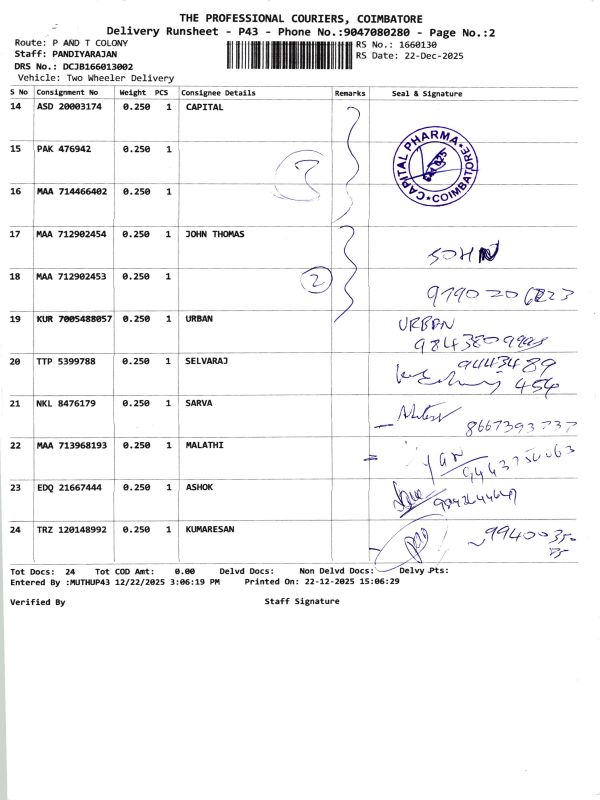 THE PROFESSIONAL COURIERS, COIMBATORE
Delivery Runsheet - P43 - Phone No.:9047080280 - Page No.:2
Route: P AND T COLONY
RS No.: 1660130
Staff: PANDIYARAJAN
RS Date: 22-Dec-2025
DRS No.: DCJB166013002
Vehicle: Two Wheeler Delivery
S No Consignment No Weight PCS Consignee Details Remarks Seal & Signature
14 ASD 20003174 0.250 1 CAPITAL
CAPITAL PHARMA
COIMBATORE
15 PAK 476942 0.250 1
3
16 MAA 714466402 0.250 1
17 MAA 712902454 0.250 1 JOHN THOMAS
JOHN
18 MAA 712902453 0.250 1
2
19 KUR 7005488057 0.250 1 URBAN
URBAN
20 TTP 5399788 0.250 1 SELVARAJ
9443489
454
21 NKL 8476179 0.250 1 SARVA
8667393737
22 MAA 713968193 0.250 1 MALATHI
23 EDQ 21667444 0.250 1 ASHOK
24 TRZ 120148992 0.250 1 KUMARESAN
Tot Docs: 24 Tot COD Amt: 0.00 Delvd Docs: Non Delvd Docs: Delvy Pts:
Entered By :MUTHUP43 12/22/2025 3:06:19 PM Printed On: 22-12-2025 15:06:29
Verified By Staff Signature